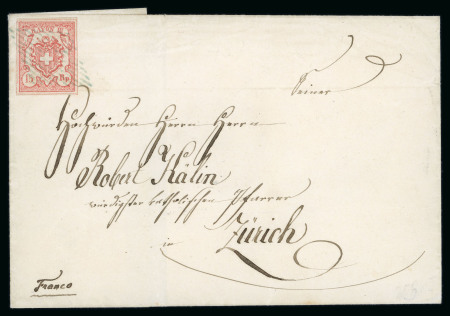 15 Rp.
Seiner
Hochwürden Herrn Herrn
Robert Kälin
würdigster katholischen Pfarrer
in
Zürich
Franco